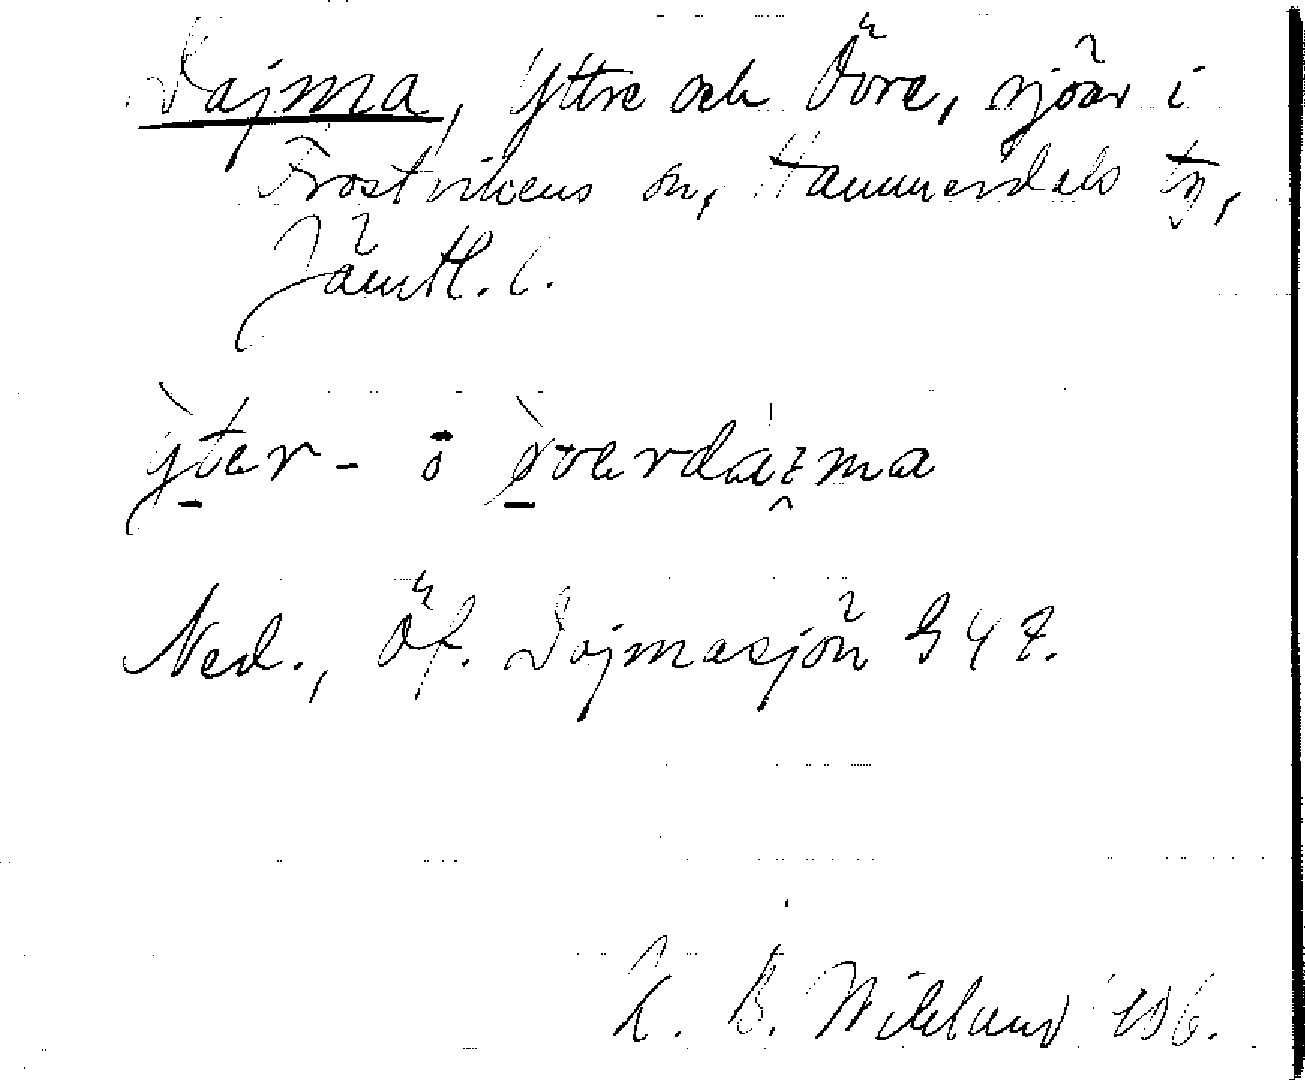 Dajma, Yttre och Övre, sjöar i
Frostvikens sn, Hammerdals tg,
Jämtl. l.
ỳter- ō ø̀verdaima
Ned., Öf. Dajmasjön G47.
K. B. Wiklund